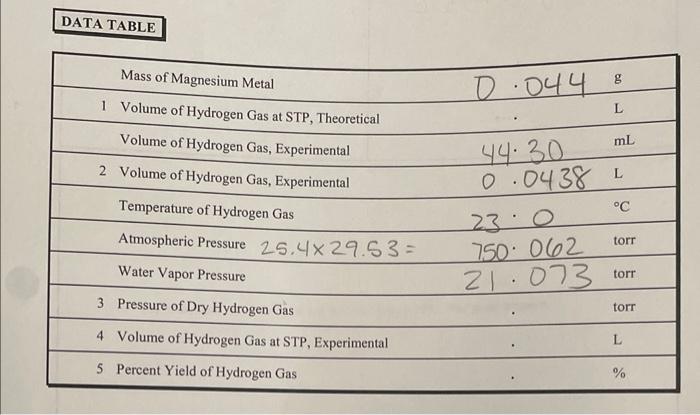 DATA TABLE
Mass of Magnesium Metal 0.044 g
1 Volume of Hydrogen Gas at STP, Theoretical . L
Volume of Hydrogen Gas, Experimental 44.30 mL
2 Volume of Hydrogen Gas, Experimental 0.0438 L
Temperature of Hydrogen Gas 23.0 °C
Atmospheric Pressure 25.4x29.53= 750.062 torr
Water Vapor Pressure 21.073 torr
3 Pressure of Dry Hydrogen Gas . torr
4 Volume of Hydrogen Gas at STP, Experimental . L
5 Percent Yield of Hydrogen Gas . %